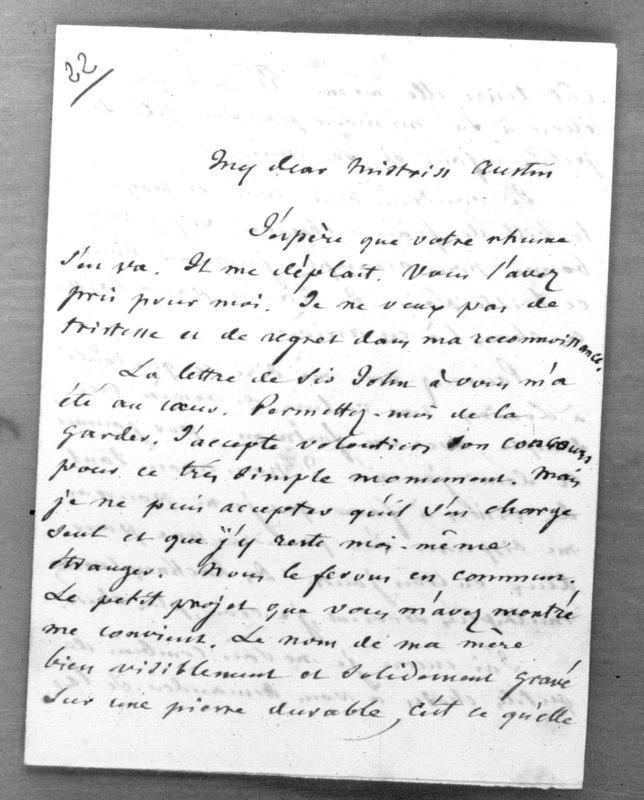 22
My dear Mistriss Austin
J'espère que votre rhume
s'en va. Il me déplait. Vous l'avez
pris pour moi. Je ne veux pas de
tristesse et de regret dans ma reconnoissance.
La lettre de Sir John à vous m'a
été au cœur. Permettez-moi de la
garder. J'accepte volontiers son concours
pour ce très simple monument. Mais
je ne puis accepter qu'il s'en charge
seul et que j'y reste moi-même
étranger. Nous le ferons en commun.
Le petit projet que vous m'avez montré
me convient. Le nom de ma mère
bien visiblement et solidement gravé
sur une pierre durable, c'est ce qu'elle